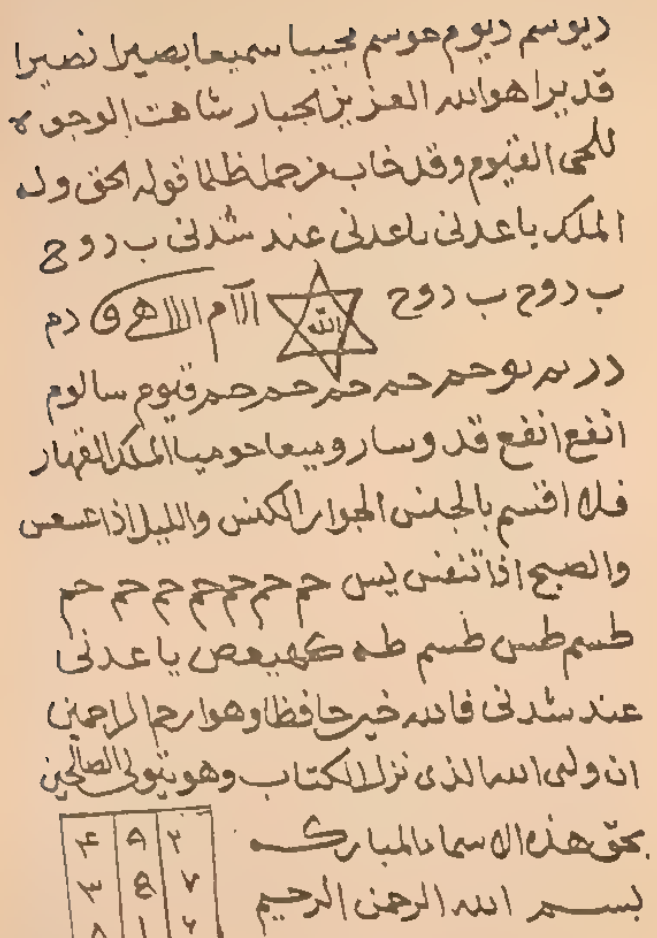 ديوسم ديوم حوسم مجيبا سميعا بصيرا نصيرا
قديرا هو الله العزيز الجبار شاهت الوجوه
للحى القيوم وقد خاب من حمل ظلما قوله الحق وله
الملك يا عدنى يا عدنى عند شدنى ب د و ح
ب د و ح ب د و ح الله
حم حم حم حم حم قيوم سالوم
انفع انفع الملك القهار
فلا اقسم بالخنس الجوار الكنس والليل اذا عسعس
والصبح اذا تنفس يس حم حم حم حم حم حم حم
طسم طس طسم طه كهيعص يا عدنى
عند شدنى فالله خير حافظا وهو ارحم الراحمين
ان ولى الله الذى نزل الكتاب وهو يتولى الصالحين
بحق هذه الاسماء المباركه ٢ ٩ ۴
بسم الله الرحمن الرحيم ٧ ۵ ٣
٦ ١ ٨